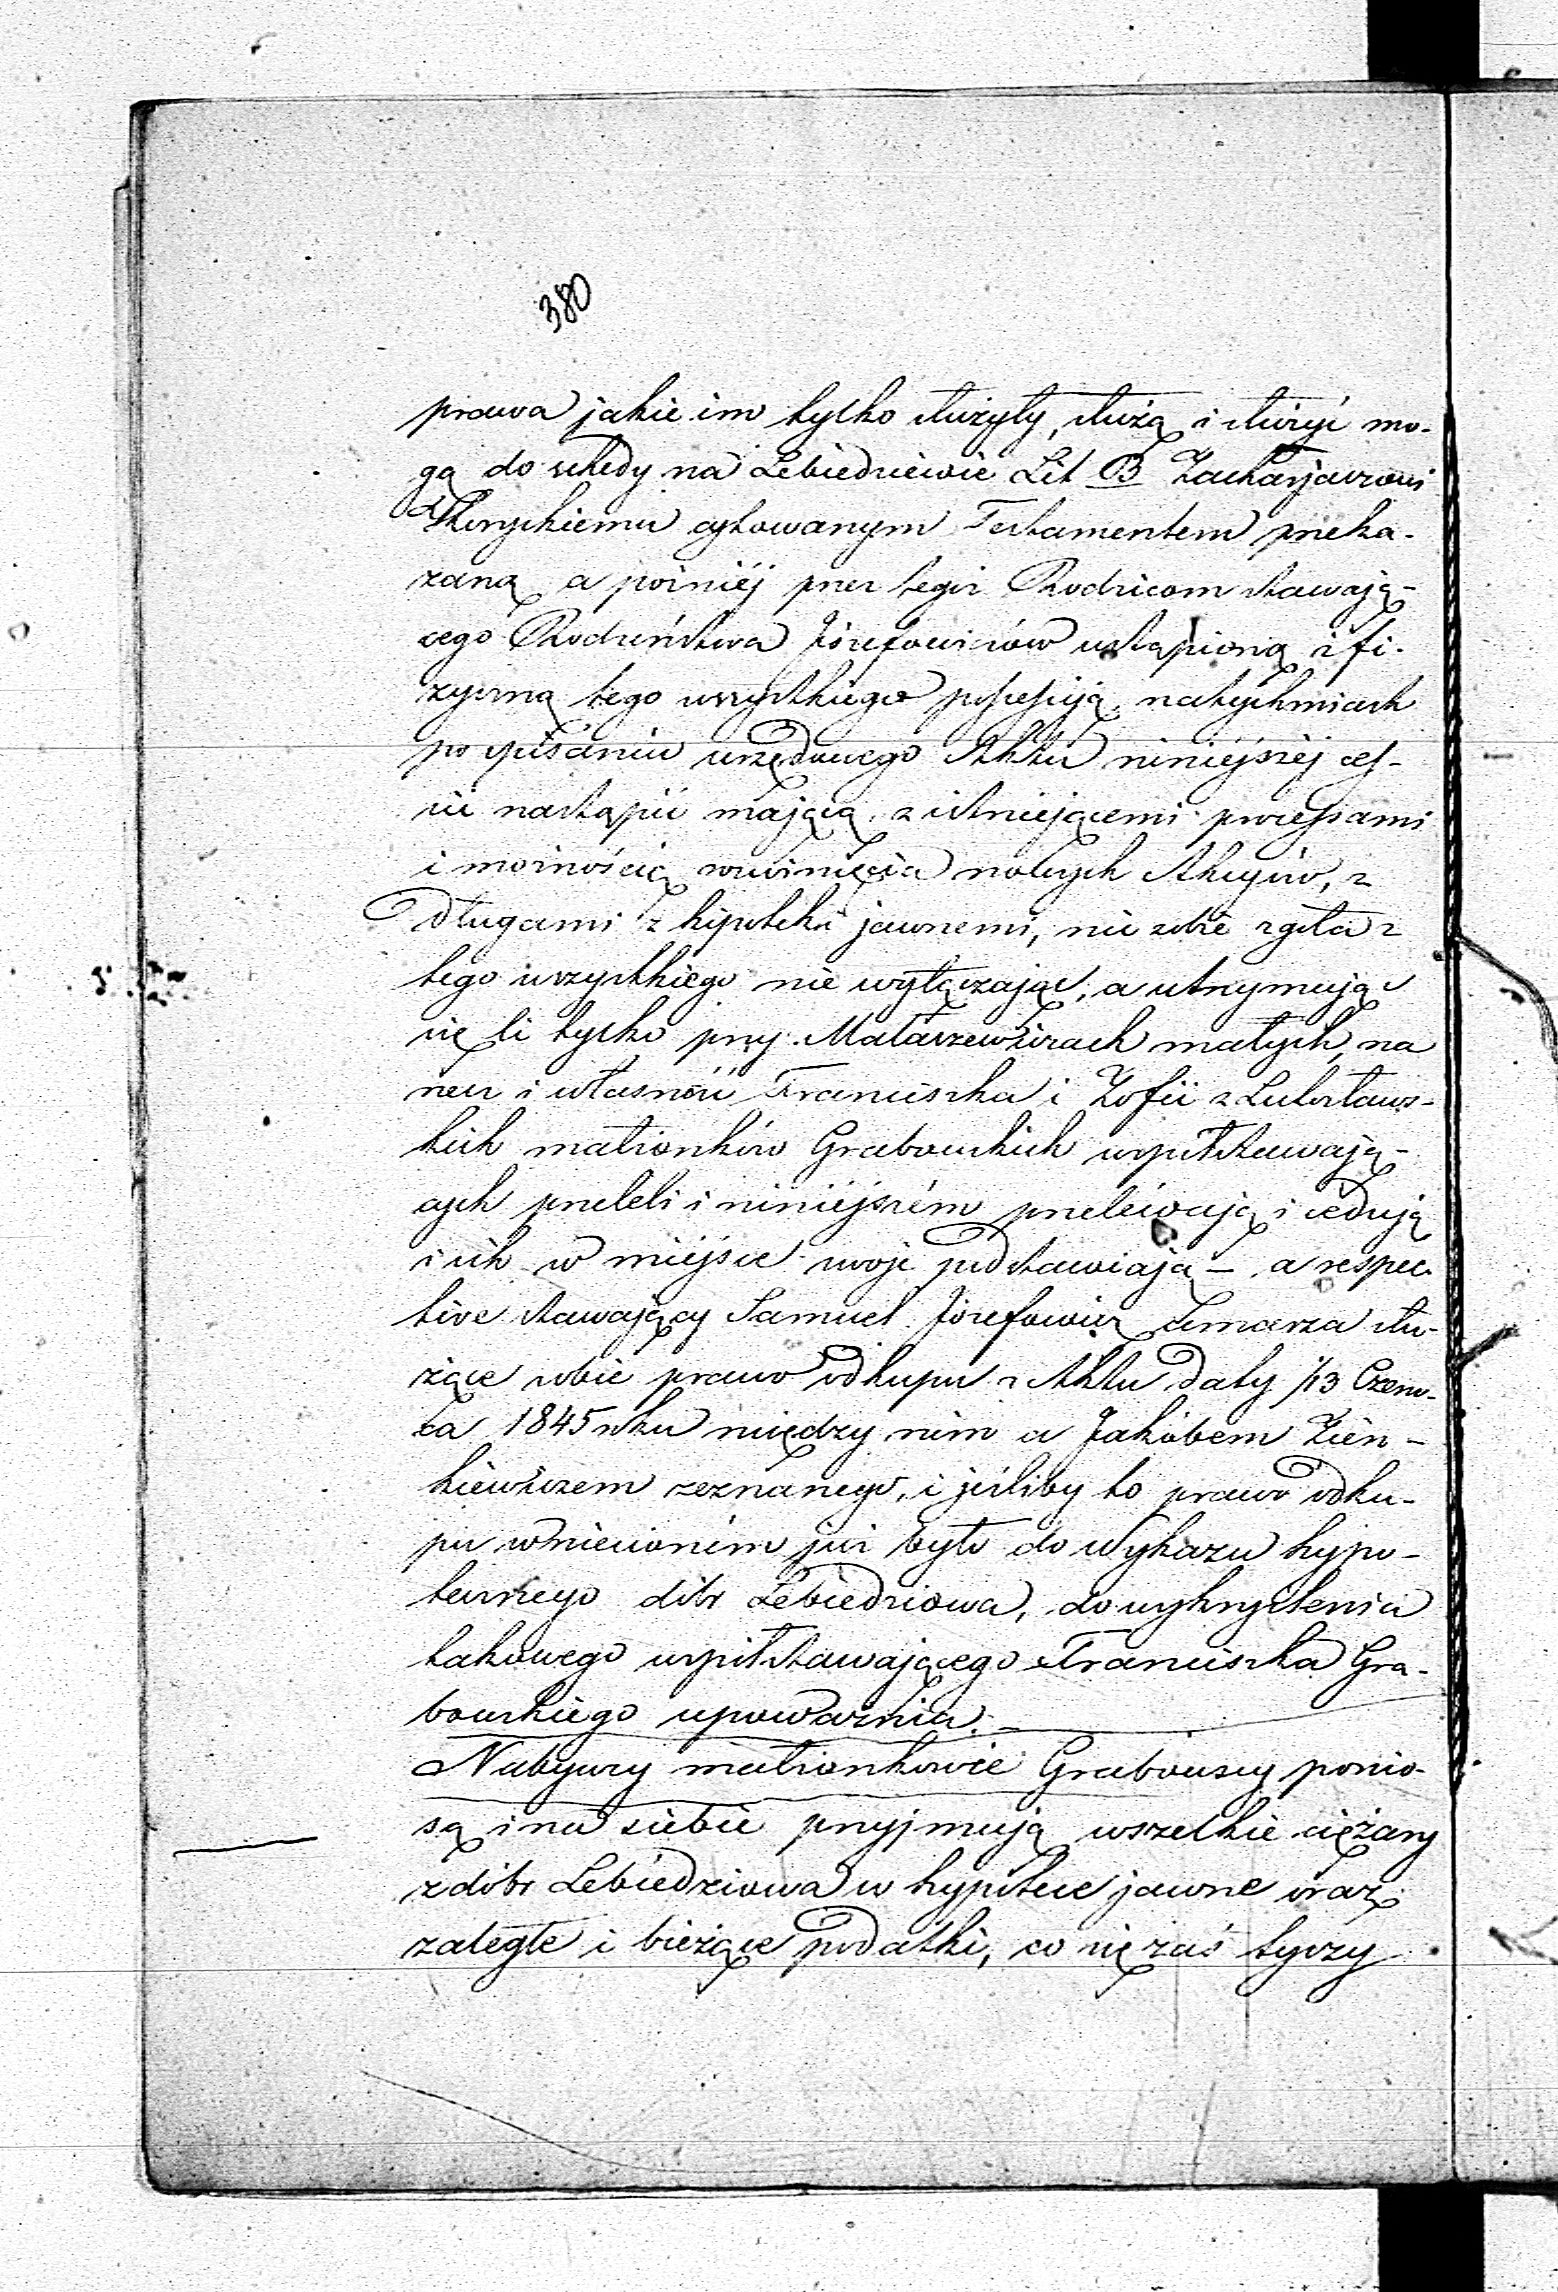 380
prawa jakie im tylko służyły, służą i służyć mo-
gą do schedy na Lebiedziewie Lit B Zacharjaszowi
Skoryckiemu cytowanym Testamentem przeka-
zaną a poźniéj przez tegoż Rodzicom stawają-
cego Rodzeństwa Józefowiczów ustąpioną z fi-
zyczną tego wszystkiego possessją, natychmiast
po spisaniu urzędowego Aktu niniejszéj ces-
sii nastąpić mającą, z istniejącemi processami
i możnością rozwinięcia nowych Akcyiów, z
długami z hipoteki jawnemi, nic sobie zgoła z
tego wszystkiego nie wyłączając, a utrzymując
się li tylko przy Małaszewiczach małych, na
rzecz i własność Franciszka i Zofii z Lutostaws-
kich małżonków Grabowskich współstawają-
cych przeleli i niniejszém przeléwają i cedują
i ich w miejsce swoje podstawiają — a respec-
tive stawający Samuel Józefowicz Lemarza słu-
żące sobie prawo odkupu z Aktu daty 1/13 Czerw-
ca 1845 roku między nim a Jakóbem Zien-
kiewiczem zeznanego, i jeśliby to prawo odku-
pu wniesioném już było do Wykazu hypo-
tecznego dóbr Lebiedziowa, do wykryślenia
takowego współstawającego Franciszka Gra-
bowskiego upoważnia. —
Nabywcy małżonkowie Grabowscy ponio-
są i na siebie przyjmują wszelkie ciężary
z dóbr Lebiedziowa w hypotece jawne oraz
zaległe i bieżące podatki, co się zaś tyczy